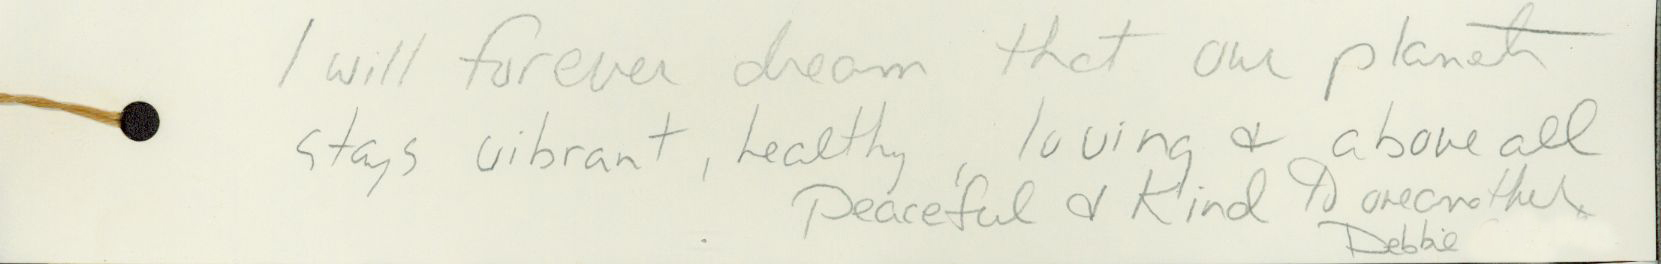 I will forever dream that our planet
stays vibrant, healthy, loving & above all
Peaceful & Kind to oneanother.
Debbie